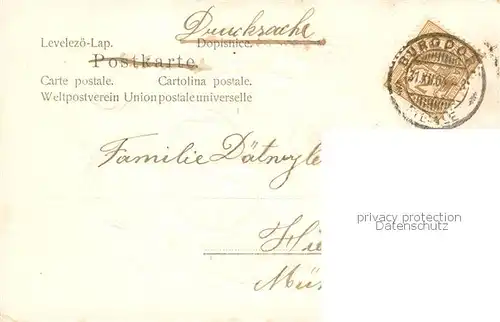 Drucksache
Levelező-Lap. Dopisnice.
Postkarte
Carte postale. Cartolina postale.
Weltpostverein Union postale universelle
BURGDO
31.XII.0
Familie Dätwyle
privacy protection
Datenschutz
Hi
Mü